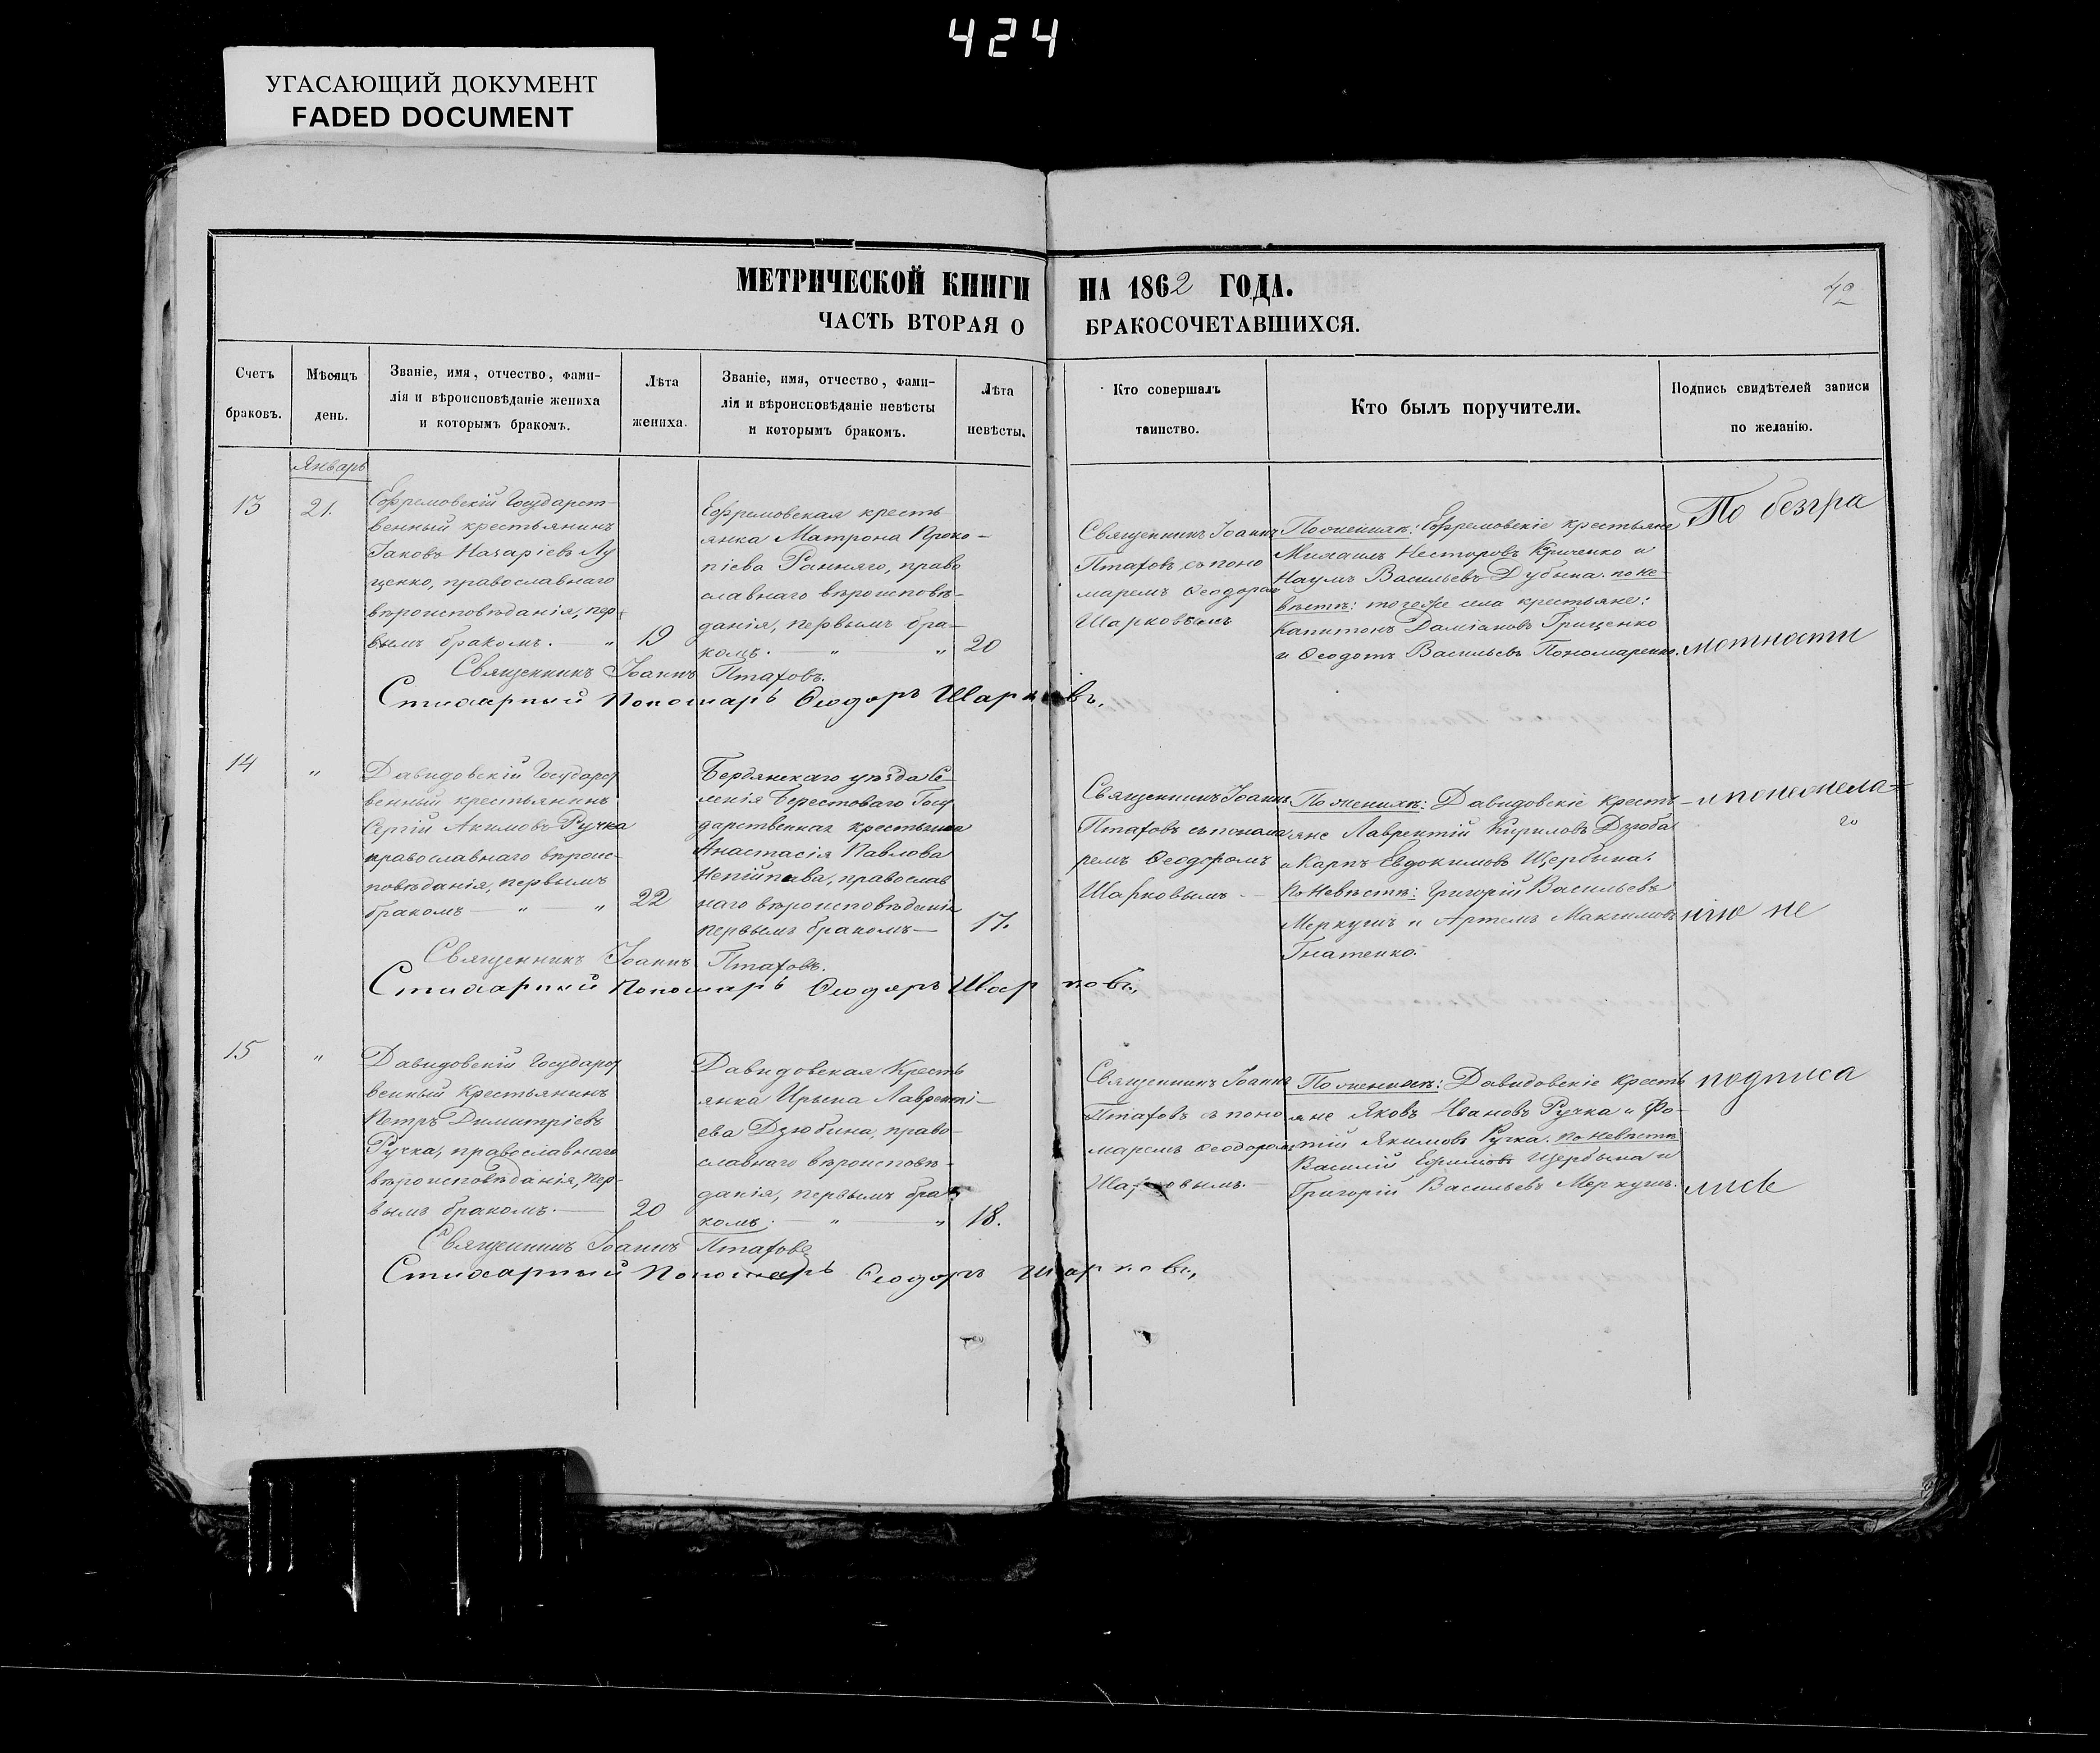 424
УГАСАЮЩИЙ ДОКУМЕНТ
FADED DOCUMENT
МЕТРИЧЕСКОЙ КНИГИ НА 1862 ГОДА.
ЧАСТЬ ВТОРАЯ О БРАКОСОЧЕТАВШИХСЯ.
Счетъ
браковъ.
Мѣсяцъ
день.
Званіе, имя, отчество, фами-
лія и вѣроисповѣданіе жениха
и которымъ бракомъ.
Лѣта
жениха.
Званіе, имя, отчество, фами-
лія и вѣроисповѣданіе невѣсты
и которымъ бракомъ.
Лѣта
невѣсты.
Кто совершалъ
таинство.
Кто былъ поручители.
Подпись свидѣтелей записи
по желанію.
Январь
13
21.
Ефремовскій Государст-
венный крестьянинъ
Іаковъ Назаріевъ Лу
ценко, православнаго
вѣроисповѣданія, пер-
вымъ бракомъ. — „
19
Ефремовская кресть
янка Матрона Проко-
піева Ранняго, право
славнаго вѣроисповѣ-
данія, первымъ бра-
комъ. — „ — „
20
Священникъ Іоаннъ
Птаховъ съ поно
маремъ Ѳеодоромъ
Шарковымъ
По женихѣ: Ефремовскіе крестьяне
Михаилъ Несторовъ Крыченко и
Наумъ Васильевъ Дубына. по не-
вѣстѣ: тогоже села крестьяне:
Капитонъ Даміановъ Грищенко
и Ѳеодотъ Васильевъ Пономаренко.
По безгра
мотности
Священникъ Іоаннъ Птаховъ.
Стихарный Пономарь Ѳеодоръ Шарковъ.
14
„
Давидовскій Государст
венный крестьянинъ
Сергій Акимовъ Ручка
православнаго вѣроис-
повѣданія, первымъ
бракомъ — „ — „
22
Бердянскаго уѣзда Се-
ленія Берестоваго Госу
дарственная крестьянка
Анастасія Павлова
православ
наго вѣроисповѣданія
первымъ бракомъ —
17.
Священникъ Іоаннъ
Птаховъ съ понома
ремъ Ѳеодоромъ
Шарковымъ. —
По женихѣ: Давидовскіе кресть-
яне Лаврентій Кириловъ Дзюба
и Карпъ Евдокимовъ Щербина.
По Невѣстѣ: Григорій Васильевъ
Меркушъ и Артемъ Максимовъ
Гнатенко.
и по нежела-
нію не
Священникъ Іоаннъ Птаховъ.
Стихарный Пономарь Ѳеодоръ Шарковъ.
15
„
Давидовскій Государст
венный Крестьянинъ
Петръ Димитріевъ
Ручка, православнаго
вѣроисповѣданія, пер-
вымъ бракомъ. —
20
Давидовская Кресть
янка Ирына Лавренті-
ева Дзюбина, право-
славнаго вѣроисповѣ-
данія, первымъ бра-
комъ. — „ — „
18.
Священникъ Іоаннъ
Птаховъ съ поно
маремъ Ѳеодоромъ
Шарковымъ. —
По женихѣ: Давидовскіе кресть
яне Яковъ Ивановъ Ручка и Фо-
тій Якимовъ Ручка. по невѣстѣ
Василій Ефимовъ Щербына и
Григорій Васильевъ Меркушъ.
подписа
лись
Священникъ Іоаннъ Птаховъ
Стихарный Пономарь Ѳеодоръ Шарковъ.